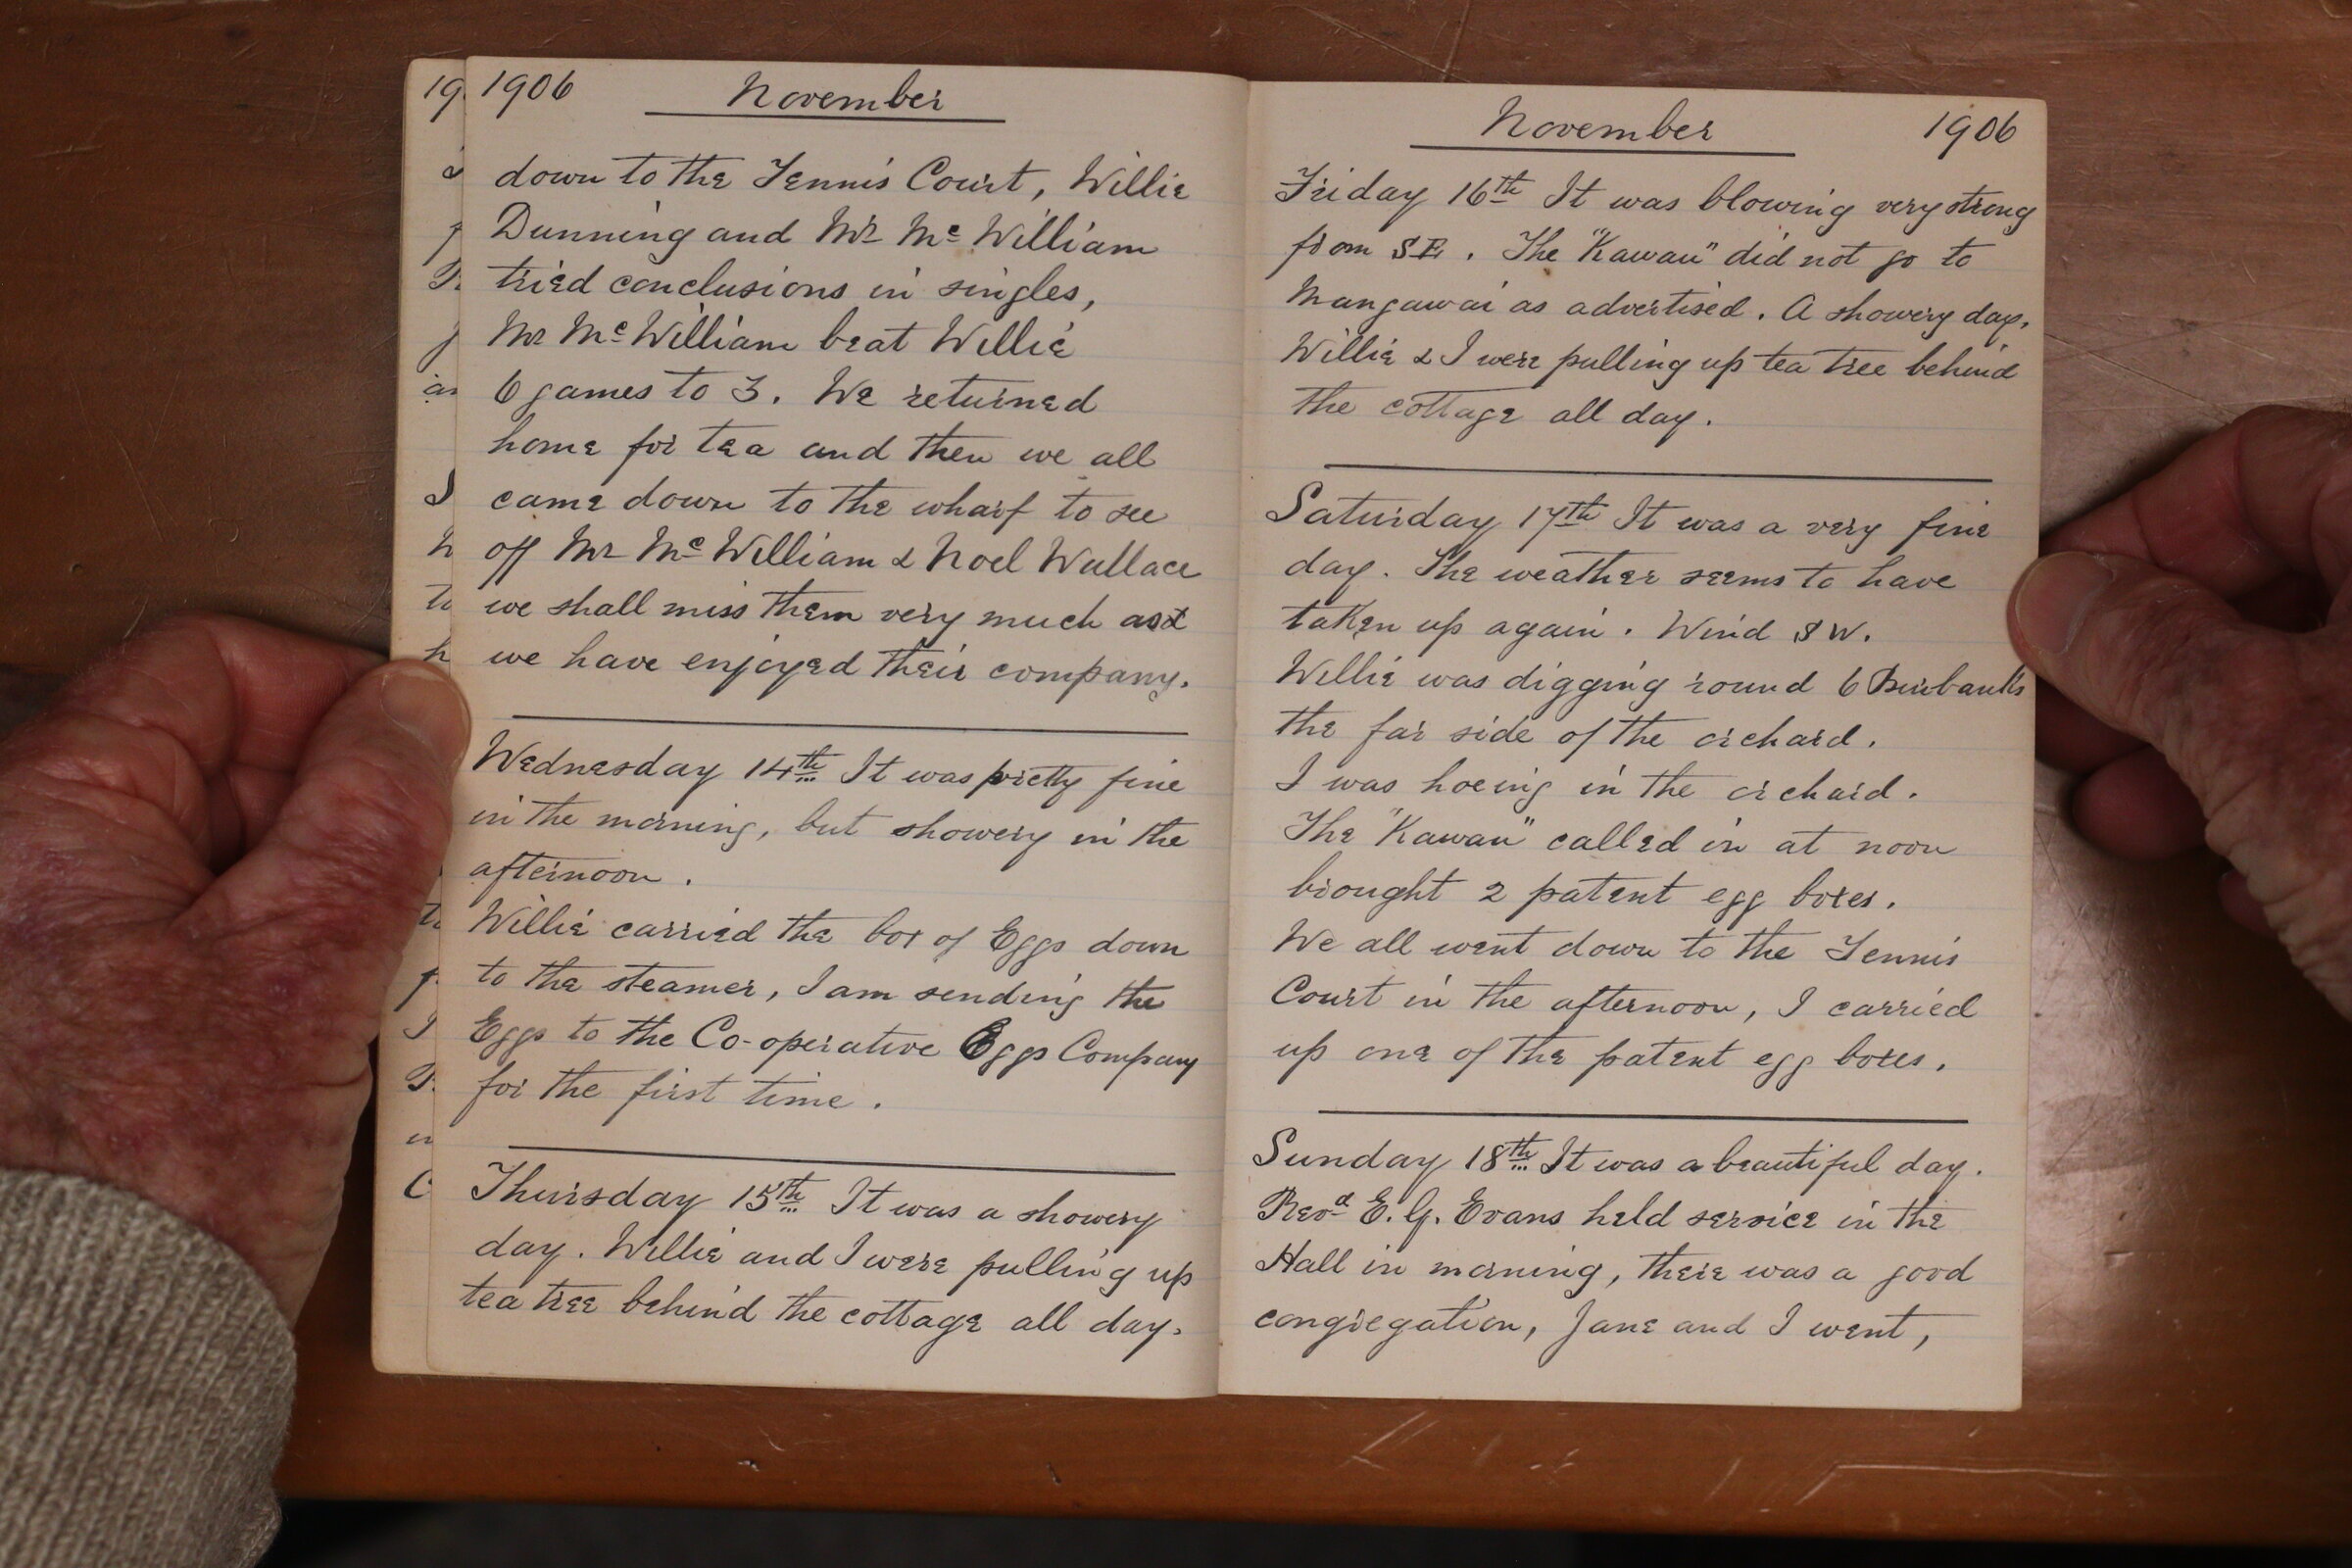 1906 November
down to the Tennis Court, Willie
Dunning and Mr Mc William
tried conclusions in singles,
Mr McWilliam beat Willie
6 games to 3. We returned
home for tea and then we all
came down to the wharf to see
off Mr McWilliam & Noel Wallace
we shall miss them very much as
we have enjoyed their company.
Wednesday 14th It was pretty fine
in the morning, but showery in the
afternoon.
Willie carried the box of Eggs down
to the steamer, I am sending the
Eggs to the Co-operative Eggs Company
for the first time.
Thursday 15th It was a showery
day. Willie and I were pulling up
tea tree behind the cottage all day.
November 1906
Friday 16th It was blowing very strong
from SE. The "Kawau" did not go to
Mangawai as advertised. A showery day.
Willie & I were pulling up tea tree behind
the cottage all day.
Saturday 17th It was a very fine
day. The weather seems to have
taken up again. Wind SW.
Willie was digging round 6 Burbanks
the far side of the orchard.
I was hoeing in the orchard.
The "Kawau" called in at noon
brought 2 patent egg boxes.
We all went down to the Tennis
Court in the afternoon, I carried
up one of the patent egg boxes.
Sunday 18th It was a beautiful day.
Revd E. G. Evans held service in the
Hall in morning, there was a good
congregation, Jane and I went,